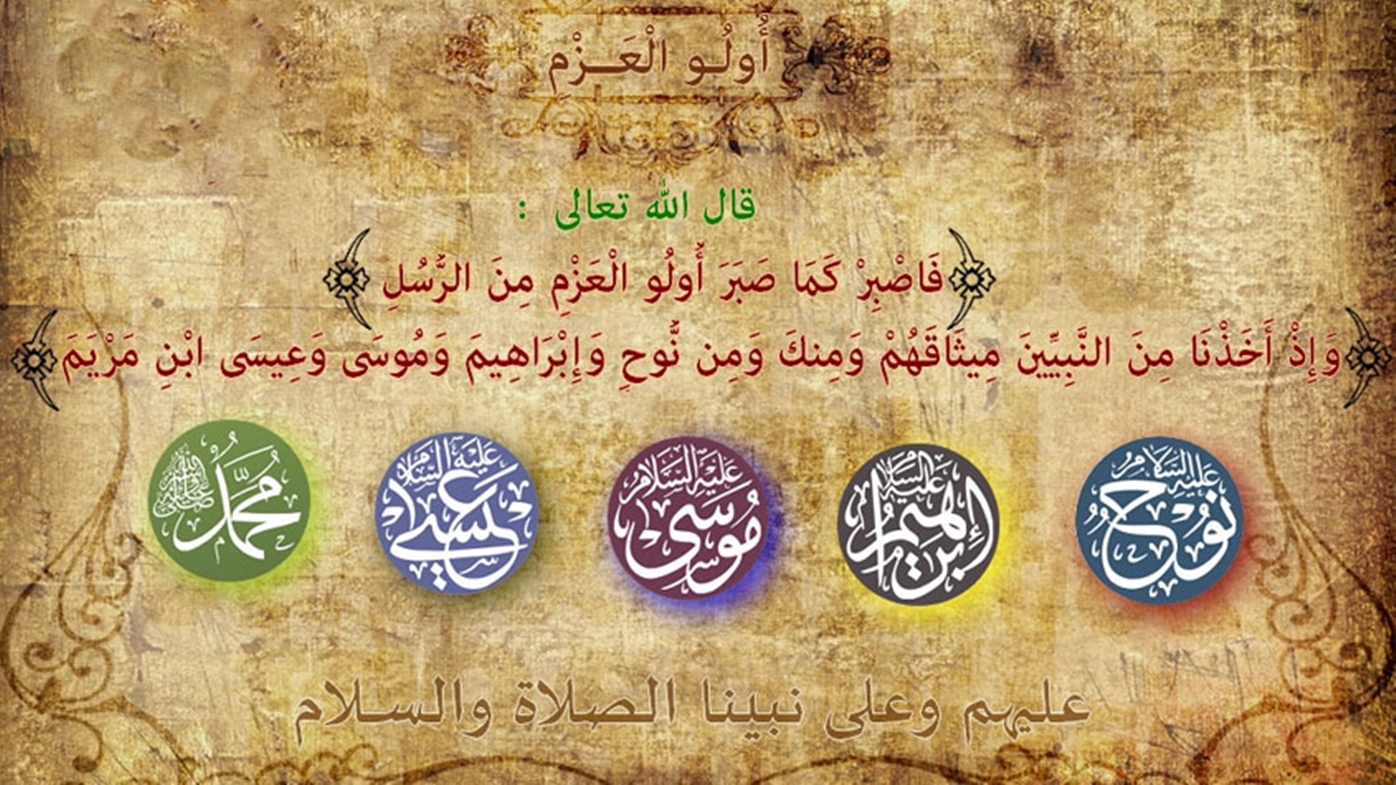 أُولُو الْعَزْمِ
قال الله تعالى :
فَاصْبِرْ كَمَا صَبَرَ أُولُو الْعَزْمِ مِنَ الرُّسُلِ
وَإِذْ أَخَذْنَا مِنَ النَّبِيِّينَ مِيثَاقَهُمْ وَمِنكَ وَمِن نُّوحٍ وَإِبْرَاهِيمَ وَمُوسَى وَعِيسَى ابْنِ مَرْيَمَ
نوح عليه السلام
إبرهيم عليه السلام
موسى عليه السلام
عيسى عليه السلام
محمد صلى الله عليه وسلم
عليهم وعلى نبينا الصلاة والسلام